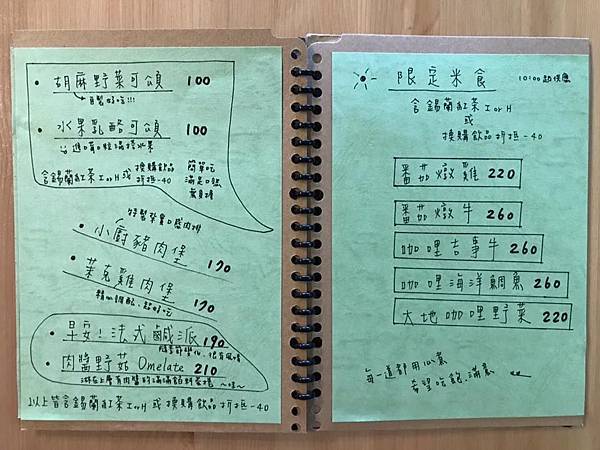 • 胡麻野菜可頌 100
自製好吃!!!
• 水果乳酪可頌 100
含錫蘭紅茶 I or H 或 換購飲品 折抵-40
簡單吃
滿足口慾
無負擔
特製
• 小廚豬肉堡 170
• 茱克雞肉堡 170
• 早安!法式鹹派 190
• 肉醬野菇 Omelate 210
以上皆含錫蘭紅茶 I or H 或 換購飲品 折抵-40
限定米食 10:00起供應
含錫蘭紅茶 I or H
或
換購飲品折抵-40
番茄燉雞 220
番茄燉牛 260
咖哩吉事牛 260
咖哩海洋鯛魚 260
大地咖哩野菜 220
每一道都用心煮
希望吃飽.滿意